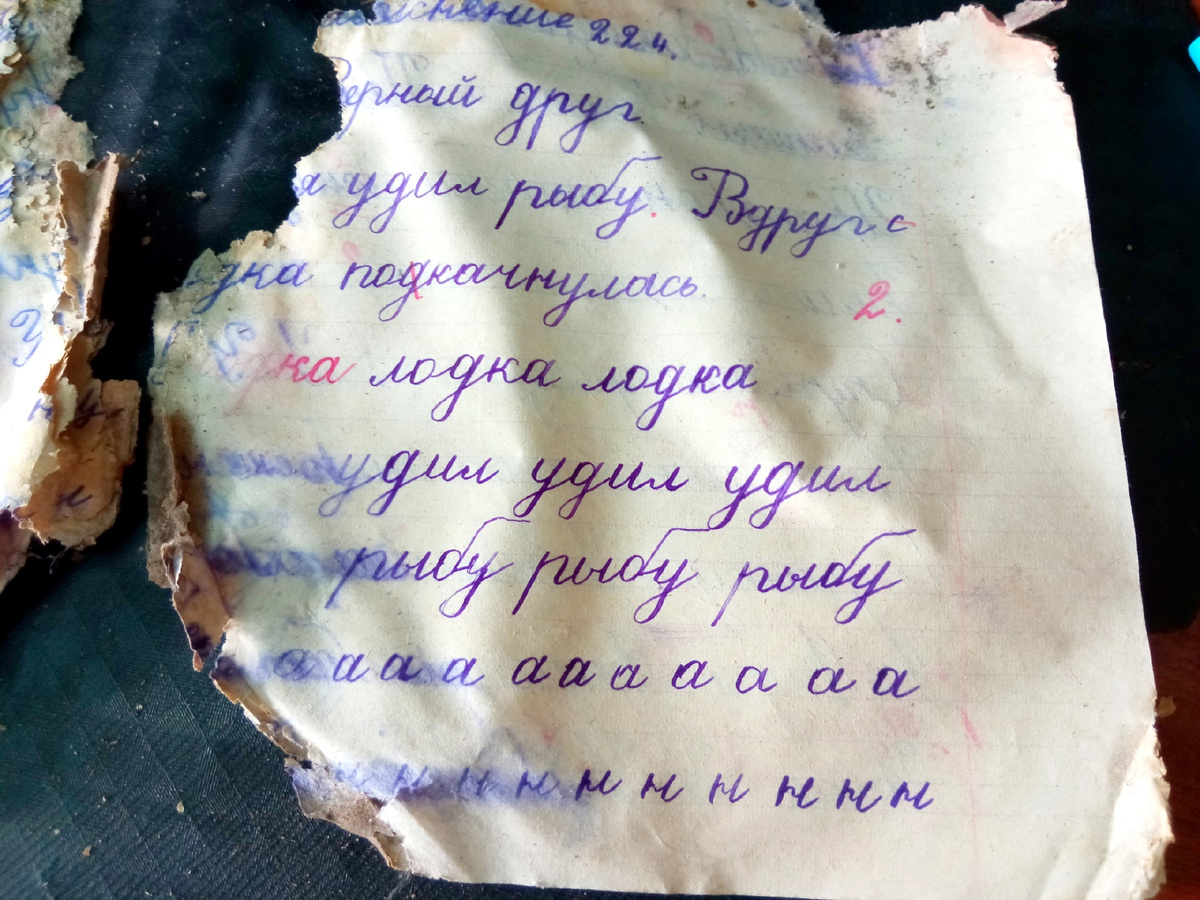 224.
Верный друг.
я удил рыбу. Вдруг с
дка подкачнулась.
2.
дка лодка лодка
удил удил удил
рыбу рыбу рыбу
а а а а а а а а а а а
н н н н н н н н н